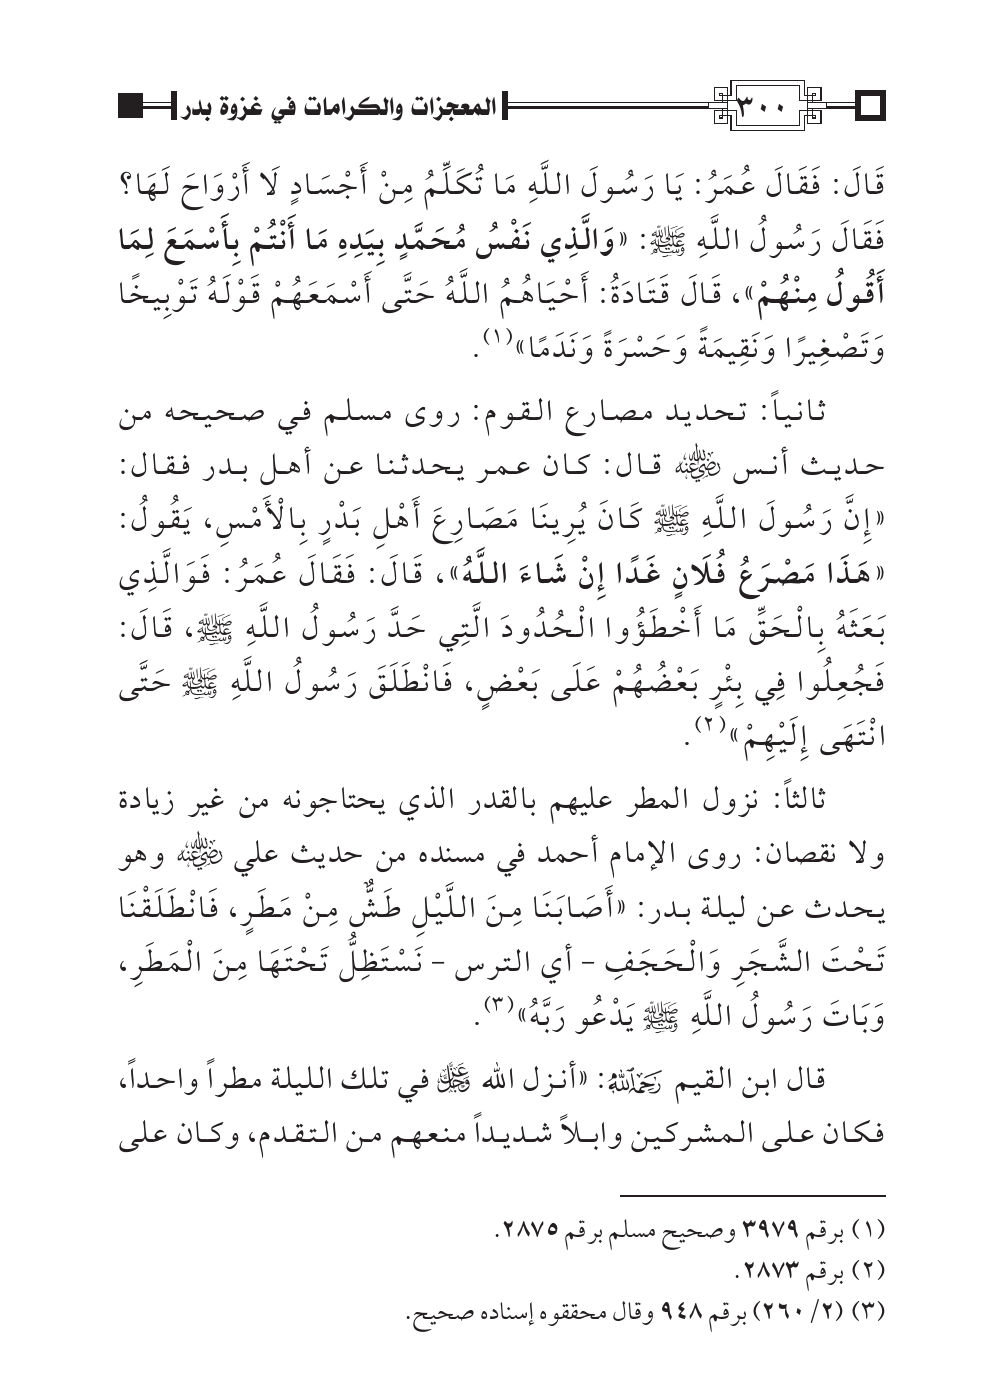 ٣٠٠ المعجزات والكرامات في غزوة بدر
قَالَ: فَقَالَ عُمَرُ: يَا رَسُولَ اللَّهِ مَا تُكَلِّمُ مِنْ أَجْسَادٍ لَا أَرْوَاحَ لَهَا؟
فَقَالَ رَسُولُ اللَّهِ ﷺ: «وَالَّذِي نَفْسُ مُحَمَّدٍ بِيَدِهِ مَا أَنْتُمْ بِأَسْمَعَ لِمَا
أَقُولُ مِنْهُمْ»، قَالَ قَتَادَةُ: أَحْيَاهُمُ اللَّهُ حَتَّى أَسْمَعَهُمْ قَوْلَهُ تَوْبِيخًا
وَتَصْغِيرًا وَنَقِيمَةً وَحَسْرَةً وَنَدَمًا»(١).
ثانياً: تحديد مصارع القوم: روى مسلم في صحيحه من
حديث أنس رضي الله عنه قال: كان عمر يحدثنا عن أهل بدر فقال:
«إِنَّ رَسُولَ اللَّهِ ﷺ كَانَ يُرِينَا مَصَارِعَ أَهْلِ بَدْرٍ بِالْأَمْسِ، يَقُولُ:
«هَذَا مَصْرَعُ فُلَانٍ غَدًا إِنْ شَاءَ اللَّهُ»، قَالَ: فَقَالَ عُمَرُ: فَوَالَّذِي
بَعَثَهُ بِالْحَقِّ مَا أَخْطَؤُوا الْحُدُودَ الَّتِي حَدَّ رَسُولُ اللَّهِ ﷺ، قَالَ:
فَجُعِلُوا فِي بِئْرٍ بَعْضُهُمْ عَلَى بَعْضٍ، فَانْطَلَقَ رَسُولُ اللَّهِ ﷺ حَتَّى
انْتَهَى إِلَيْهِمْ»(٢).
ثالثاً: نزول المطر عليهم بالقدر الذي يحتاجونه من غير زيادة
ولا نقصان: روى الإمام أحمد في مسنده من حديث علي رضي الله عنه وهو
يحدث عن ليلة بدر: «أَصَابَنَا مِنَ اللَّيْلِ طَشٌّ مِنْ مَطَرٍ، فَانْطَلَقْنَا
تَحْتَ الشَّجَرِ وَالْحَجَفِ – أي الترس – نَسْتَظِلُّ تَحْتَهَا مِنَ الْمَطَرِ،
وَبَاتَ رَسُولُ اللَّهِ ﷺ يَدْعُو رَبَّهُ»(٣).
قال ابن القيم رحمه الله: «أنزل الله عز وجل في تلك الليلة مطراً واحداً،
فكان على المشركين وابلاً شديداً منعهم من التقدم، وكان على
(١) برقم ٣٩٧٩ وصحيح مسلم برقم ٢٨٧٥.
(٢) برقم ٢٨٧٣.
(٣) (٢/ ٢٦٠) برقم ٩٤٨ وقال محققوه إسناده صحيح.